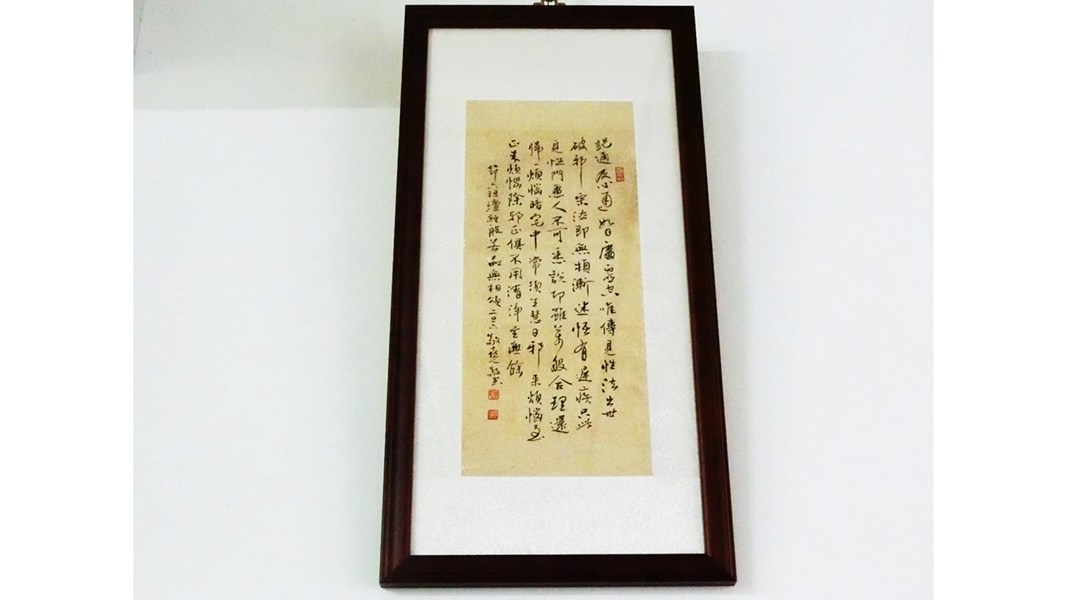 說通及心通如日處虛空唯傳見性法出世
破邪宗法即無頓漸迷悟有遲疾只此
見性門愚人不可悉說即雖萬般合理還
歸一煩惱暗宅中常須生慧日邪來煩惱至
正來煩惱除邪正俱不用清淨至無餘
節六祖壇經般若品無相頌